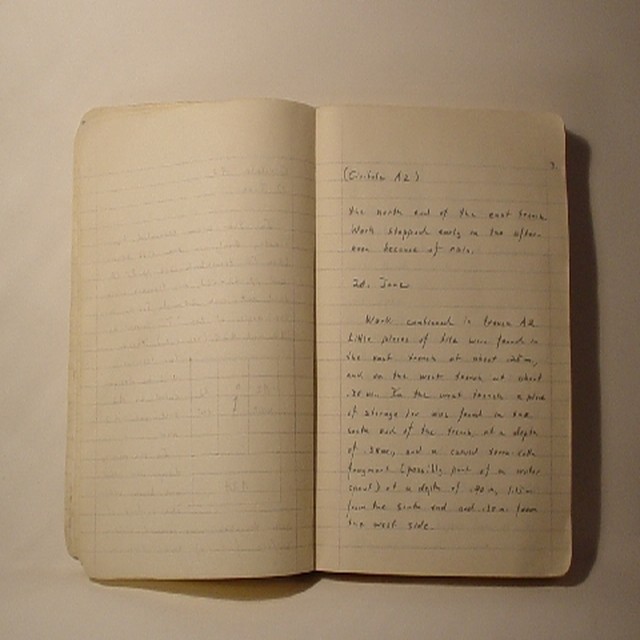 3.
A2)
the north end of the east trench.
Work stopped early in the after-
noon because of rain.
20. June
Work continued in trench A2
Little pieces of tile were found in
the east trench at about .25 m,
and in the west trench at about
m. In the west trench a piece
of storage jar was found in the
south end of the trench at a depth
of and a curved terra-cotta
fragment (possibly part of a water
spout) at a depth of .40 m,
from the south end and from
the west side.